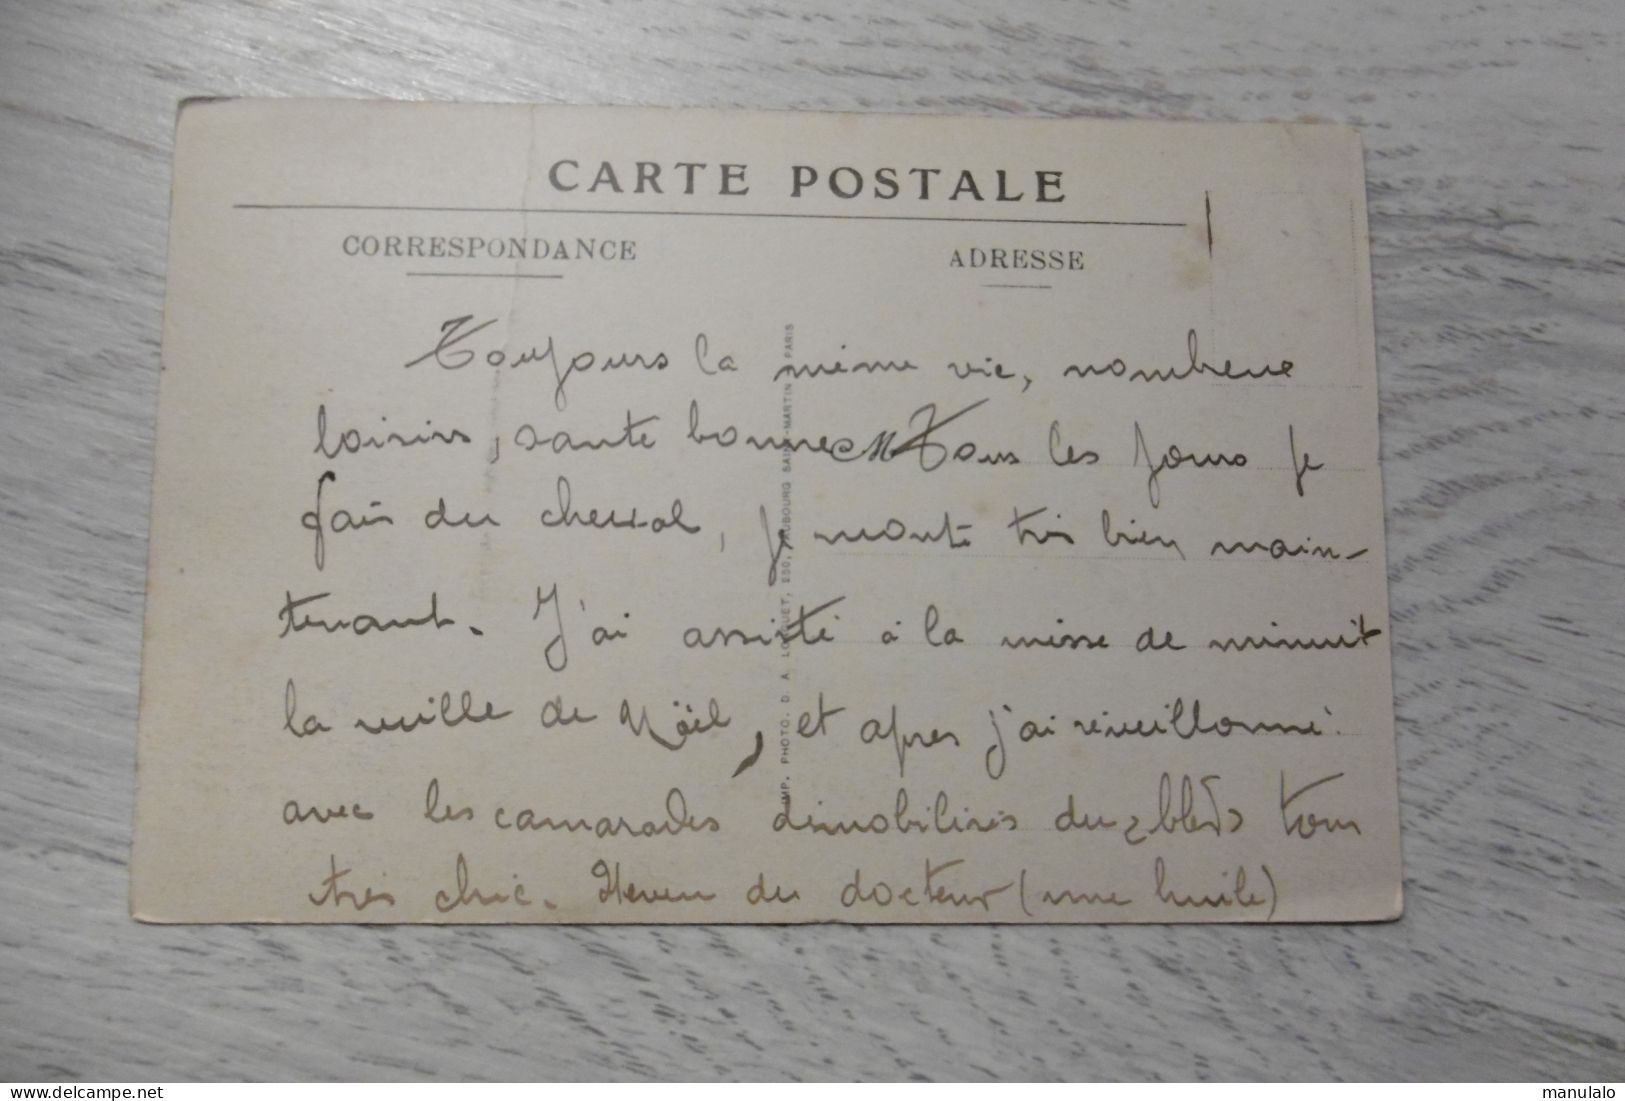 CARTE POSTALE
CORRESPONDANCE
ADRESSE
Toujours la même vie, nombreux
loisirs, sante bonne Tous les jours je
fais du cheval, je monte très bien main-
tenant. J'ai assisté à la messe de minuit
la veille de Noël, et apres j'ai réveillonné
avec les camarades démobilisés du bled
très chic. du docteur (une huile)
IMP. PHOTO. D. A. LONGUET, 250, FAUBOURG SAINT-MARTIN PARIS
delcampe.net
manulalo